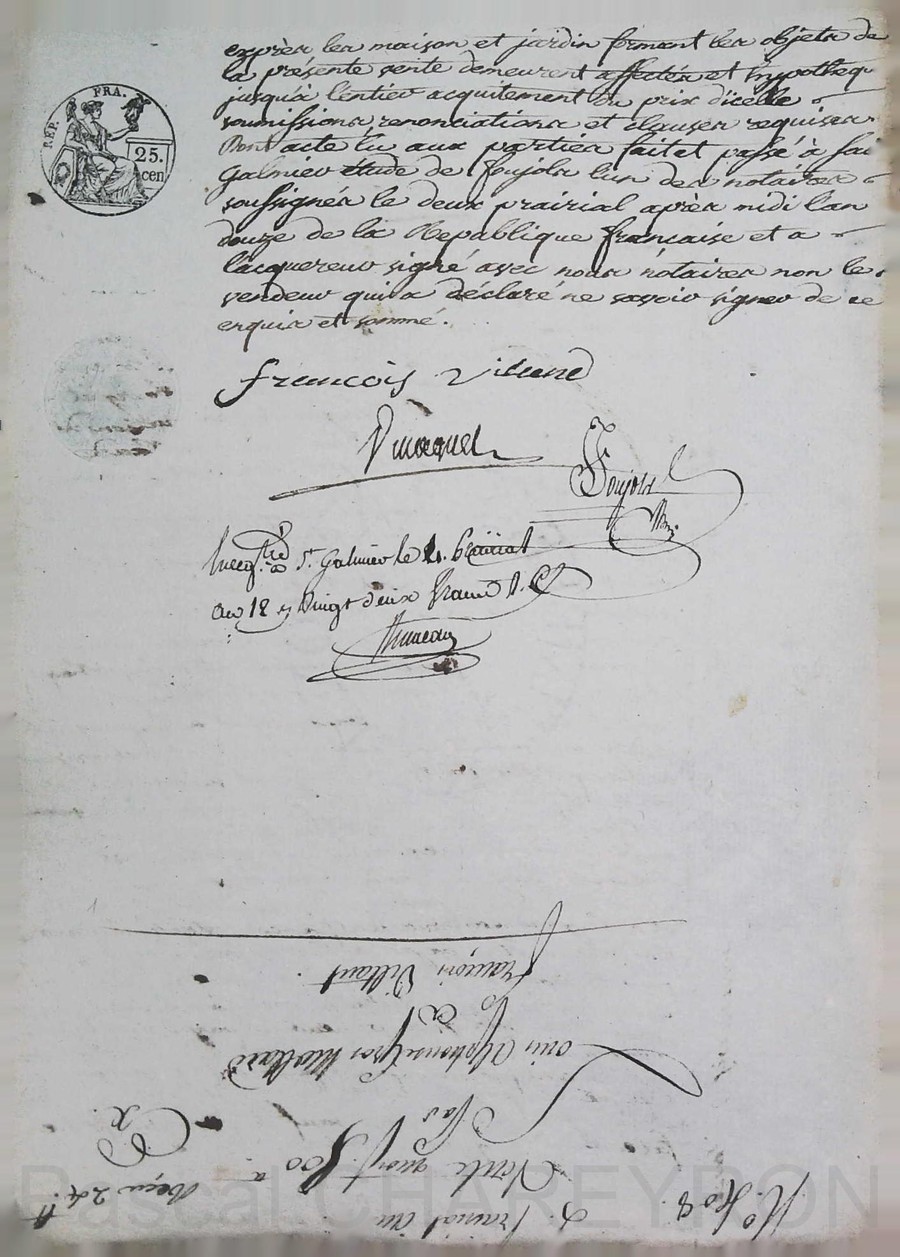 REP. FRA.
25.
cen
exprès les maison et jardin formant les objets de
la présente vente demeurent affectés et hypothequ
jusqu'à lentier acquitement du prix dicelle
soumissions renonciations et clauses requises
Dont acte lu aux parties fait et passé à sai
Galmier étude de Foujols l'un des notaires
soussignés le deux prairial après midi l'an
douze de la Republique française et a
l'acquereur signé avec nous notaires non le
vendeur qui a déclaré ne savoir signer de ce
enquis et sommé.
françois
Foujols
a St Galmier le 4. prairial
an 12 vingt deux francs
N.°
prairial an
Vente pour 500
Par
Louis
à
françois Villant
Pascal CHAREYRON